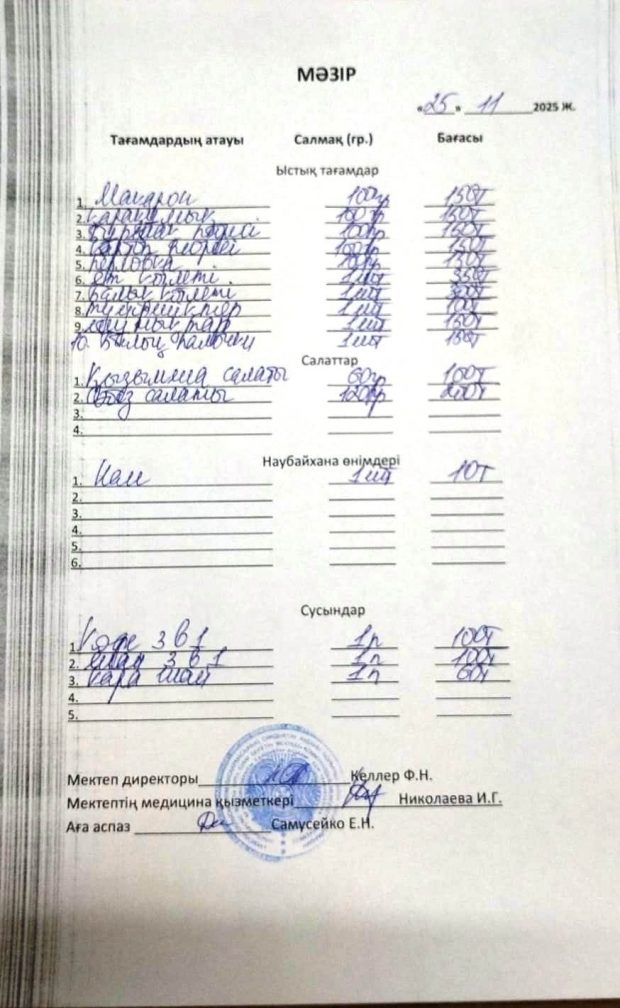 МӘЗІР
«25» 11 2025 ж.
Тағамдардың атауы Салмақ (гр.) Бағасы
Ыстық тағамдар
1. Макарон 100гр 150т
2. қарақұмық 100гр 150т
3. 100гр 150т
4. 100гр 150т
5. перловка 100гр 150т
6. ет котлеті 1 шт 350т
7. балық котлеті 1 шт
8. 1 шт 100т
9. 1 шт 150т
10. Балық палочки 1 шт 150т
Салаттар
1. Қызылша салаты 60гр 100т
2. салаты 120гр 200т
3.
4.
Наубайхана өнімдері
1. Нан 1 шт 10т
2.
3.
4.
5.
6.
Сусындар
1. Кофе 3 в 1 1п 100т
2. шай 3 в 1 1п 100т
3. қара шай 1п 60т
4.
5.
Мектеп директоры Келлер Ф.Н.
Мектептің медицина қызметкері Николаева И.Г.
Аға аспаз Самусейко Е.Н.